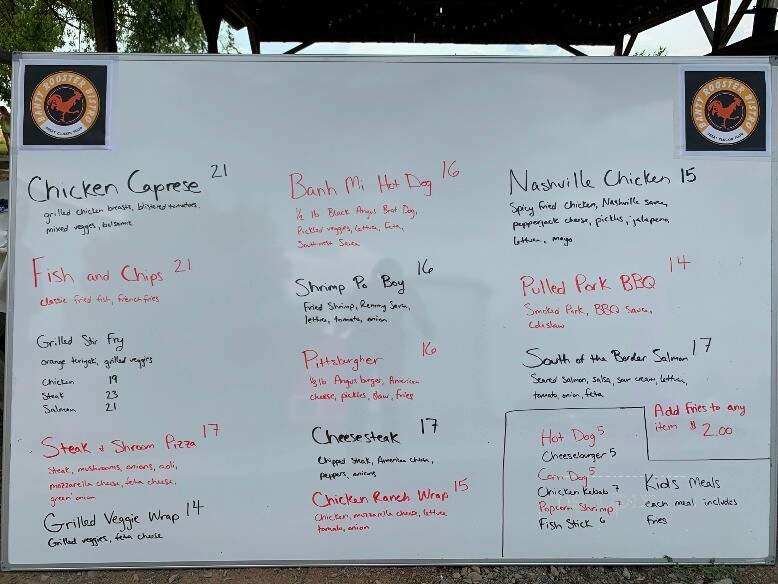 CRAFTY ROOSTER BISTRO
CRAFTY ROOSTER BISTRO
Chicken Caprese 21
grilled chicken breasts, blistered tomatoes,
mixed veggies, balsamic
Fish and Chips 21
classic fried fish, french fries
Grilled Stir Fry
orange teriyaki, grilled veggies
Chicken 19
Steak 23
Salmon 21
Steak & Shroom Pizza 17
Steak, mushrooms, onions, aioli,
mozzarella cheese, feta cheese,
green onion
Grilled Veggie Wrap 14
Grilled veggies, feta cheese
Banh Mi Hot Dog 16
1/2 lb Black Angus Brat Dog,
Pickled veggies, lettuce, Feta,
Southwest Sauce
Shrimp Po Boy 16
Fried Shrimp, Remmy Sauce,
lettuce, tomato, onion
Pittsburgher 16
1/3 lb Angus burger, American
cheese, pickles, slaw, fries
Cheesesteak 17
Chipped Steak, American cheese,
peppers, onions
Chicken Ranch Wrap 15
Chicken, mozzarella cheese, lettuce
tomato, onion
Nashville Chicken 15
Spicy fried chicken, Nashville sauce,
pepperjack cheese, pickles, jalapeno,
lettuce, mayo
Pulled Pork BBQ 14
Smoked Pork, BBQ Sauce,
Coleslaw
South of the Border Salmon 17
Seared Salmon, salsa, sour cream, lettuce,
tomato, onion, feta
Add Fries to any
item $ 2.00
Hot Dog 5
Cheeseburger 5
Corn Dog 5
Chicken Kabob 7
Popcorn Shrimp 7
Fish Stick 6
Kids Meals
each meal includes
fries